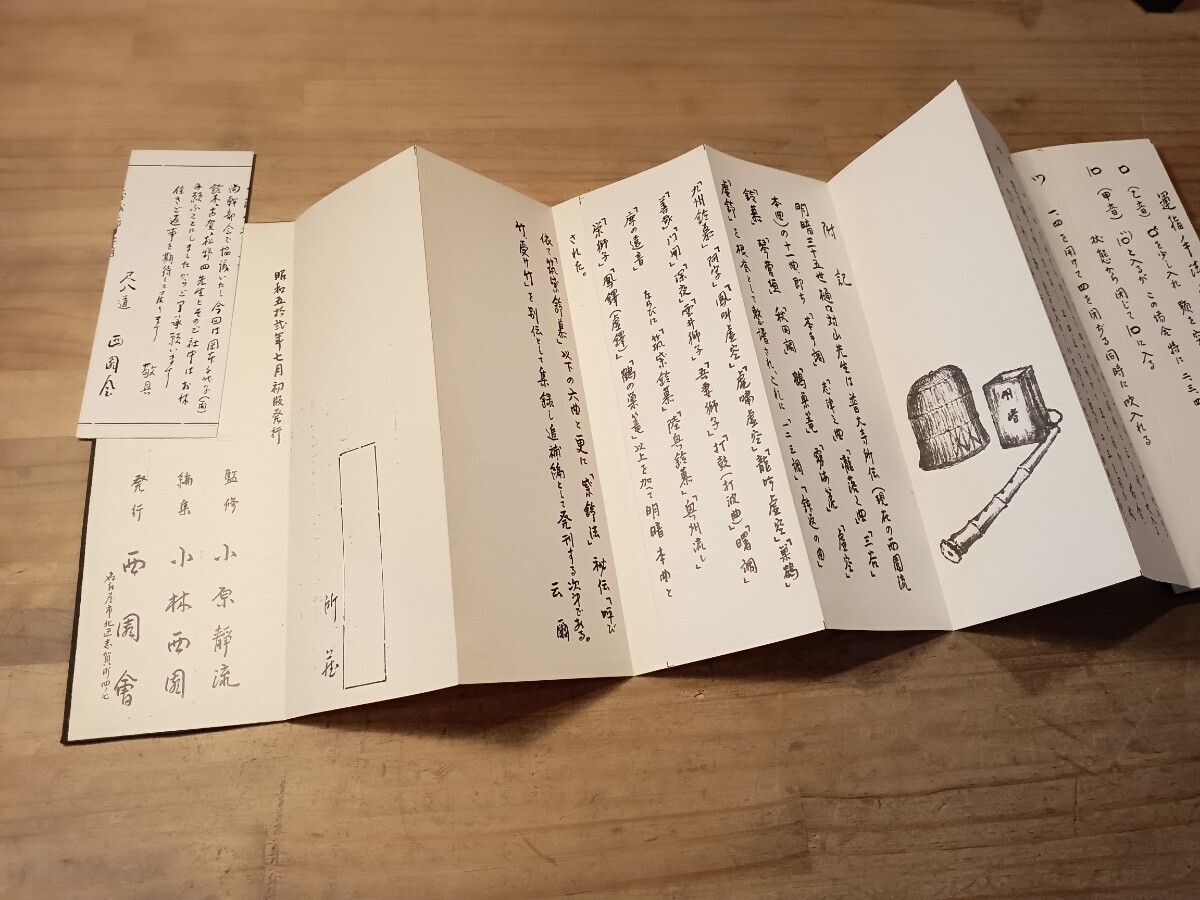 運指ノ手法
(乙音)
を少し入れ 顎を
(甲音)
と入るが この場合特に 二、三、四
状態から 閉じて 口に入る
ツ 一、四を開けて 四を閉ぢる同時に吹入れる
明暗
附記
明暗三十五世樋口対山先生は普大寺所伝(現在の西園流
本曲)の十一曲、即ち「本手調」「志津之曲」「瀧落之曲」「三谷」
「鈴慕」「琴曹垣」「秋田調」「鶴巣籠」「霧海箎」「虚空」
「虚鈴」を根本として整譜され、これに「一二三調」「鉢返の曲」
「九州鈴慕」「阿字」「鳳叫虚空」「虎嘯虚空」「龍吟虚空」「巣鶴」
「善哉」「門開」「深夜」「雲井獅子」「吾妻獅子」「打鼓(打波曲)」「曙調」
「摩の遠音」
ならびに「筑紫鈴慕」「陸奥鈴慕」「奥州流し」
「栄獅子」「鳳鐸(虚鐸)」「鶴の巣籠」以上を加へて明暗本曲と
された。
依て「筑紫鈴慕」以下の六曲と更に「嗽鉾法」秘伝「呼び
竹受け竹」を別伝として集録し追補編として発刊する次才である。
云爾
所蔵
昭和五拾弐年七月初版発行
監修 小原靜流
編集 小林西園
発行 西園會
名古屋市北区志賀町四ノ七
尚幹部会で協議いたし今回は国本千代子(函)
鈴木古賀、松野四先生とその社中はお休
み願ふことにしましたからご了承願います
佳きご返事を期待して居ります
敬具
尺八道 西園会